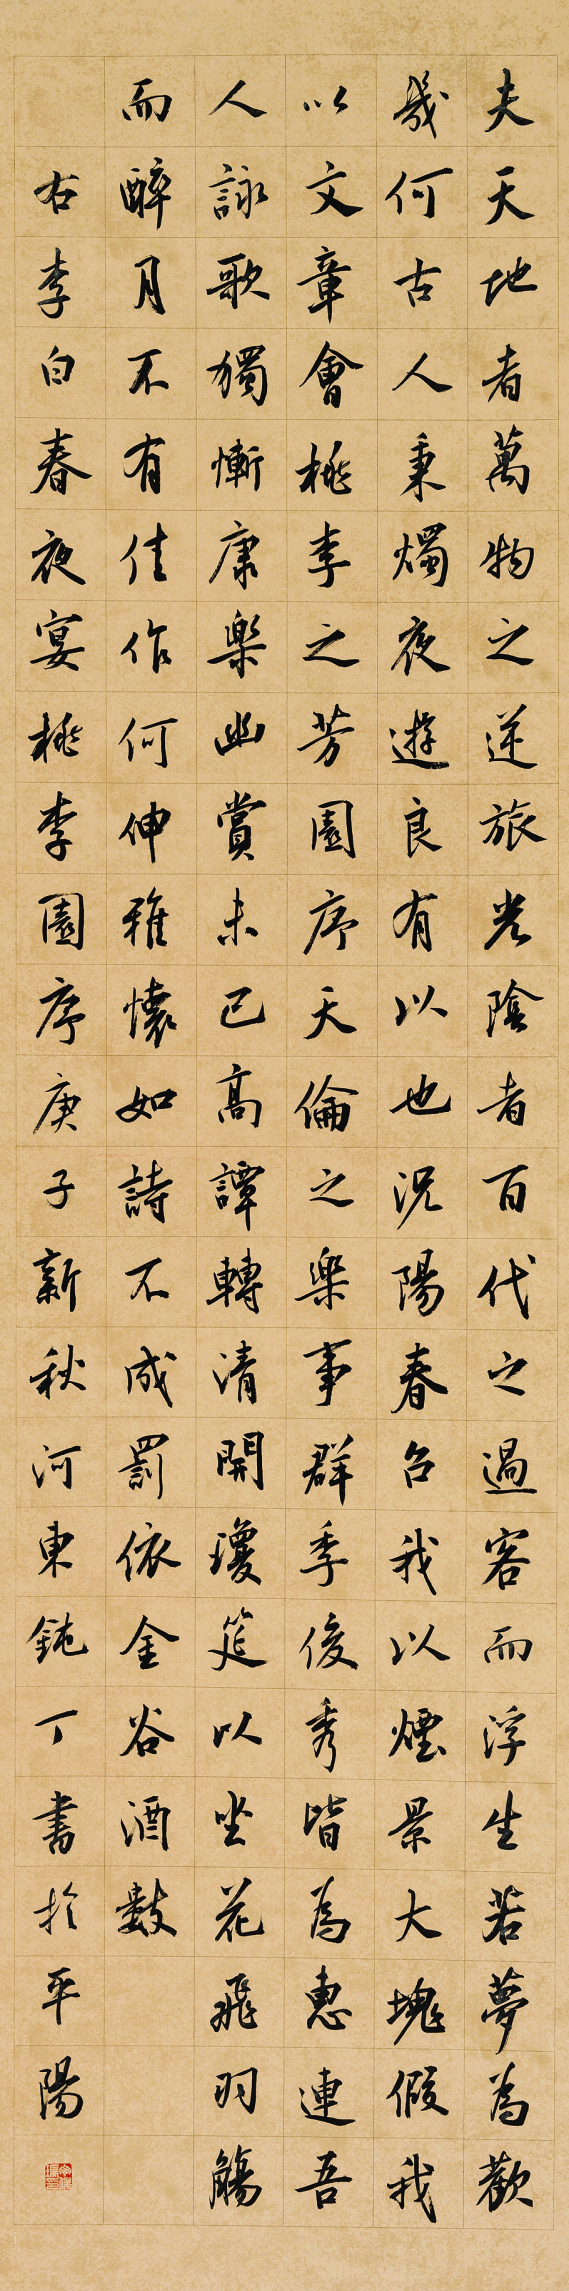 夫天地者萬物之逆旅光陰者百代之過客而浮生若夢為歡
幾何古人秉燭夜遊良有以也況陽春召我以煙景大塊假我
以文章會桃李之芳園序天倫之樂事群季俊秀皆為惠連吾
人詠歌獨慚康樂幽賞未已高譚轉清開瓊筵以坐花飛羽觴
而醉月不有佳作何伸雅懷如詩不成罰依金谷酒數
右李白春夜宴桃李園序庚子新秋河東鈍丁書於平陽